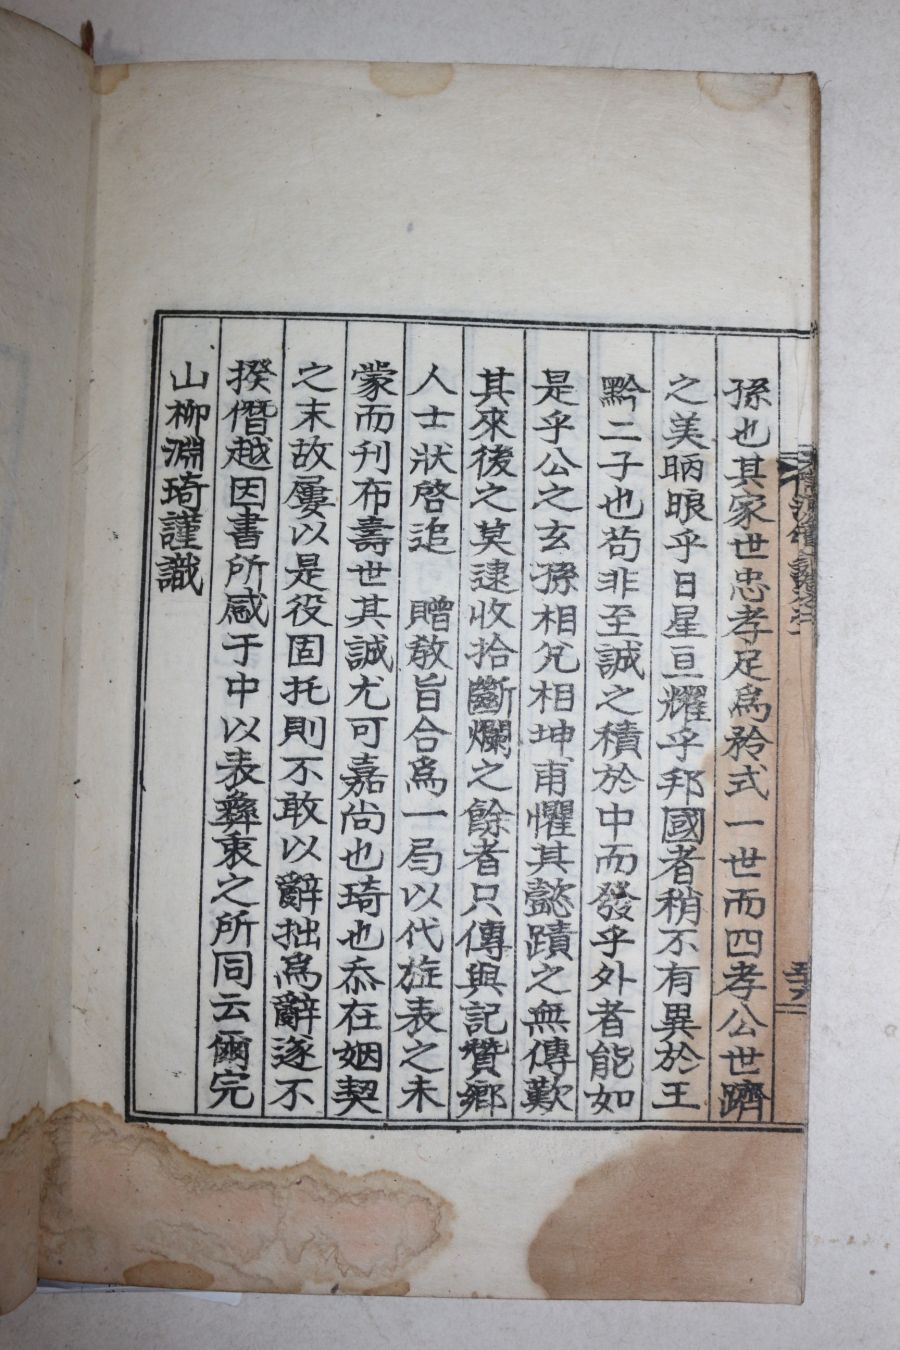 孫也其家世忠孝足爲矜式一世而四孝公世躋
之美昞晛乎日星亘耀乎邦國者稍不有異於王
黔二子也苟非至誠之積於中而發乎外者能如
是乎公之玄孫相允相坤甫懼其懿蹟之無傳歎
其來後之莫逮收拾斷爛之餘者只傳與記贊鄉
人士狀啓追 贈敎旨合爲一局以代旌表之未
蒙而刊布壽世其誠尤可嘉尚也琦也忝在姻契
之末故屢以是役固托則不敢以辭拙爲辭遂不
揆僭越因書所感于中以表彝衷之所同云爾完
山柳淵琦謹識